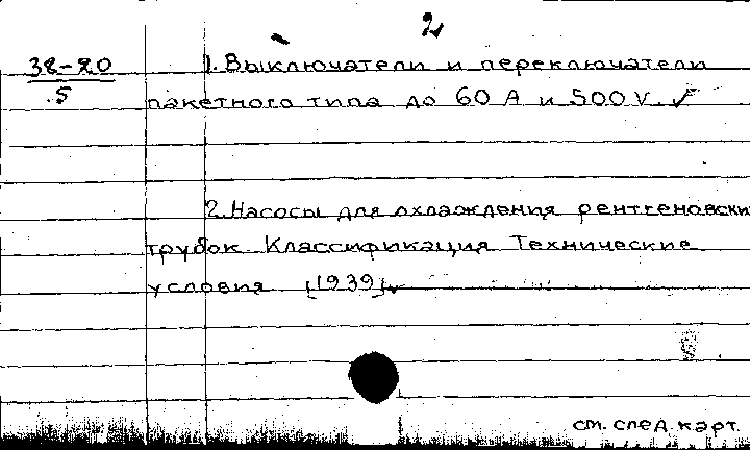 2
38-20
5
1. Выключатели и переключатели
пакетного типа до 60 А и 500 V.
2. Насосы для охлаждения рентгеновских
трубок Классификация Технические
условия [1939]
см. след. карт.